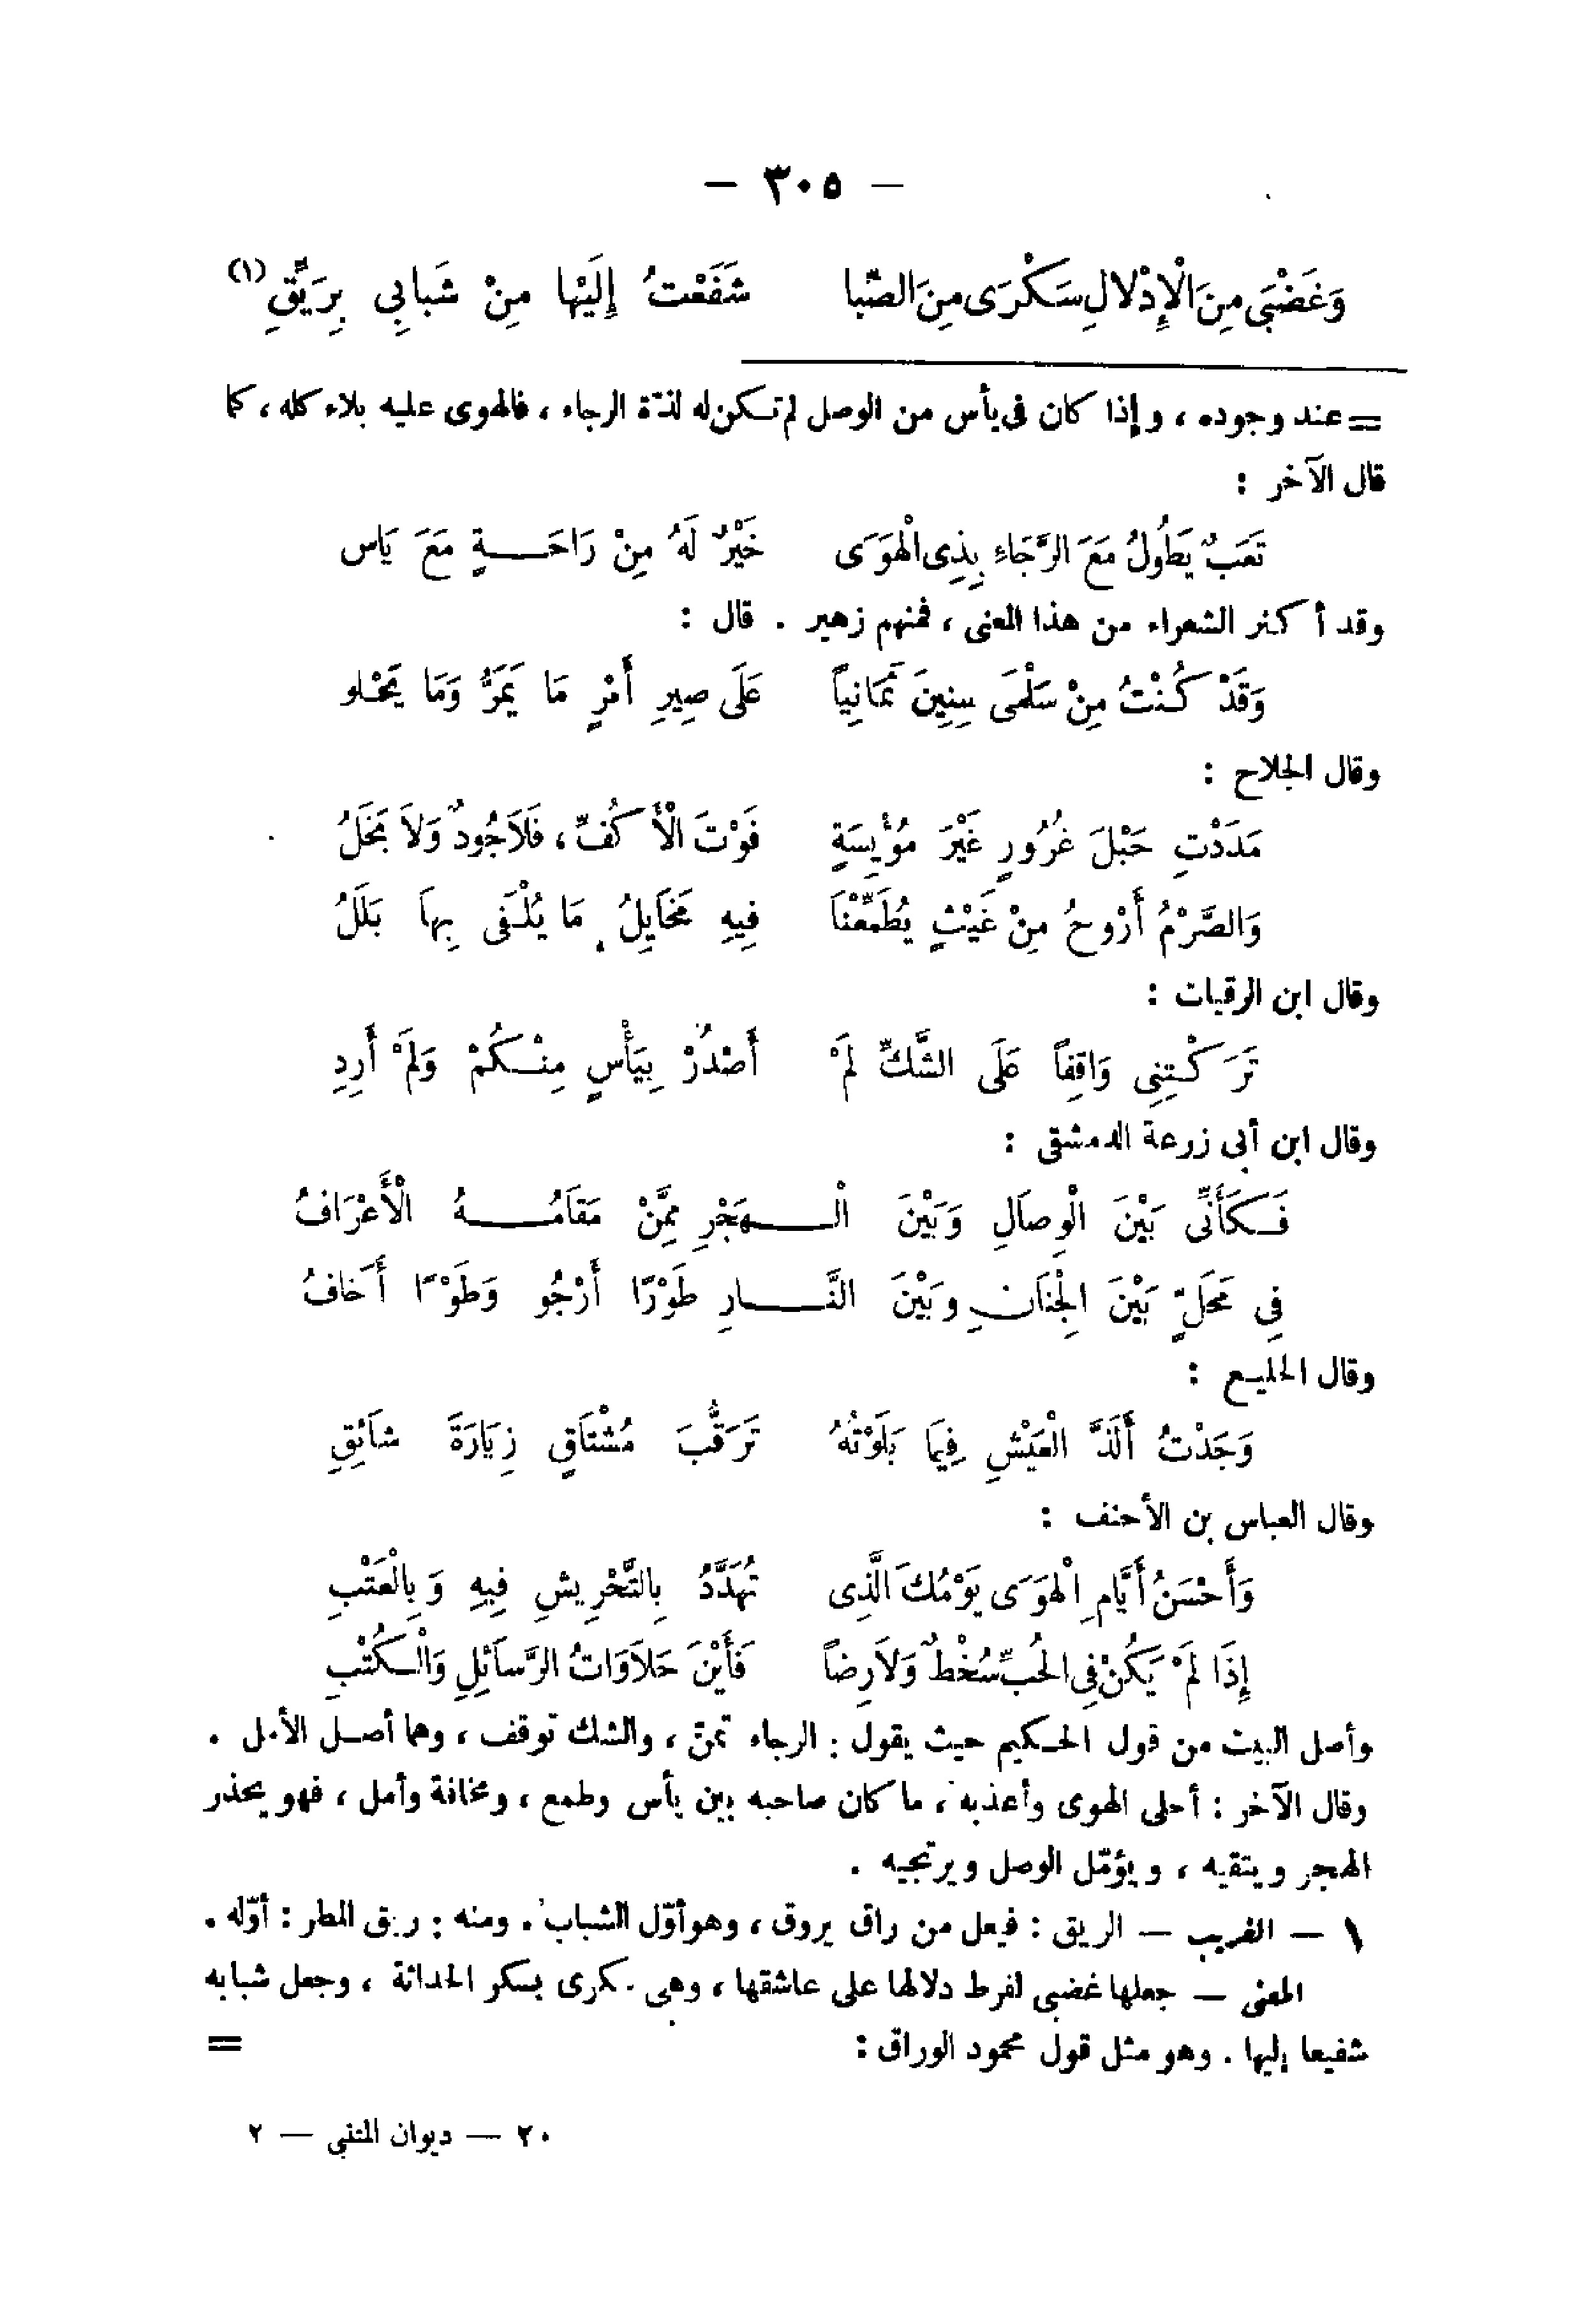 — ٣٠٥ —
وَغَضْبَى مِنَ الْإِدْلَالِ سَكْرَى مِنَ الصِّبا شَفَعْتُ إِلَيْها مِنْ شَبابِي بِرَيِّقِ (١)
= عند وجوده ، وإذا كان فى يأس من الوصل لم تكن له لذة الرجاء ، فالهوى عليه بلاء كله ، كما
قال الآخر :
تَعَبٌ يَطُولُ مَعَ الرَّجَاءِ بِذِى الْهَوَى خَيْرٌ لَهُ مِنْ رَاحَةٍ مَعَ يَاس
وقد أكثر الشعراء من هذا المعنى ، فمنهم زهير . قال :
وَقَدْ كُنْتُ مِنْ سَلْمَى سِنِينَ ثَمَانِياً عَلَى صِيرِ أَمْرٍ مَا يَمَرُّ وَمَا يَحْلو
وقال الجلاح :
مَدَدْتِ حَبْلَ غُرُورٍ غَيْرَ مُؤْيِسَةٍ فَوْتَ الْأَكُفِّ ، فَلَا جُودٌ وَلَا بَخَلُ
وَالصَّرْمُ أَرْوحُ مِنْ غَيْثٍ يُطَمِّعُنَا فِيهِ مَخَايِلُ مَا يُلْفَى بِهَا بَلَلُ
وقال ابن الرقيات :
تَرَكْتِنِى وَاقِفاً عَلَى الشَّكِّ لَمْ أَصْدُرْ بِيَأْسٍ مِنْكُمْ وَلَمْ أَرِدِ
وقال ابن أبى زرعة الدمشقى :
فَكَأَنِّى بَيْنَ الْوِصَالِ وَبَيْنَ الْهَجْرِ مِمَّنْ مَقَامُهُ الْأَعْرَافُ
فِى مَحَلٍّ بَيْنَ الْجِنَانِ وبَيْنَ النَّارِ طَوْرًا أَرْجُو وَطَوْرًا أَخافُ
وقال الخليع :
وَجَدْتُ أَلَذَّ الْعَيْشِ فِيمَا بَلَوْتُهُ تَرَقُّبَ مُشْتَاقٍ زِيَارَةَ شائِقِ
وقال العباس بن الأحنف :
وَأَحْسَنُ أَيَّامِ الْهَوَى يَوْمُكَ الَّذِى تُهَدَّدُ بِالتَّحْرِيشِ فِيهِ وَبِالْعَتْبِ
إِذَا لَمْ يَكُنْ فِى الحُبِّ سُخْطٌ وَلَا رِضاً فَأَيْنَ حَلَاوَاتُ الرَّسَائِلِ وَالْكُتْبِ
وأصل البيت من قول الحكيم حيث يقول : الرجاء تمنّ ، والشك توقف ، وهما أصل الأمل .
وقال الآخر : أحلى الهوى وأعذبه ، ما كان صاحبه بين يأس وطمع ، ومخافة وأمل ، فهو يحذر
الهجر ويتقيه ، ويؤمّل الوصل ويرتجيه .
١ — الغريب — الريق : فيعل من راق يروق ، وهو أوّل الشباب . ومنه : ريق المطر : أوّله .
المعنى — جعلها غضبى لفرط دلالها على عاشقها ، وهى سكرى بسكر الحداثة ، وجعل شبابه
شفيعا إليها . وهو مثل قول محمود الوراق : =
٢٠ — ديوان المتنبى — ٢